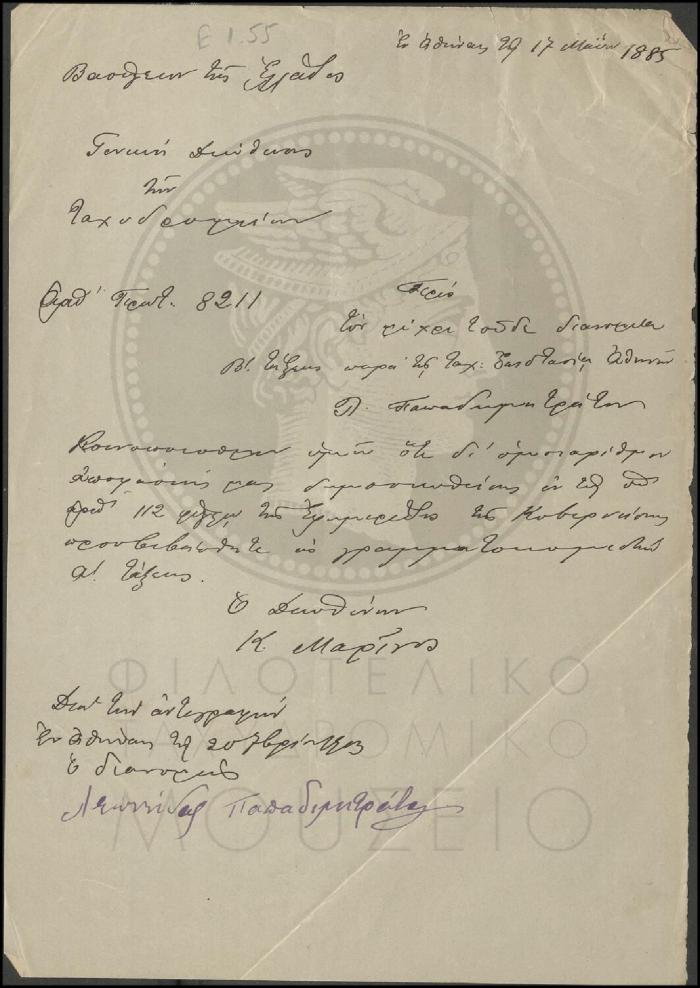 Ε 1.55
Ἐν Ἀθήναις τῇ 17 Μαΐου 1885
Βασίλειον τῆς Ἑλλάδος
Γενικὴ Διεύθυνσις
τῶν
ταχυδρομείων
Ἀριθ. Πρωτ. 8211
Περὶ
τὸν μέχρι τοῦδε διανομέα
Β' τάξεως παρὰ τῆς ταχ: Ἀθηνῶν
Λ. Παπαδημητράτον
Κοινοποιοῦμεν ὑμῖν ὅτι δι' ὁμοιαρίθμου
ἀποφάσεώς μας δημοσιευθείσης ἐν τῷ ὑπ'
ἀριθ. 112 φύλλῳ τῆς Ἐφημερίδος τῆς Κυβερνήσεως
προεβιβάσθητε εἰς γραμματοκομιστὴν
Α' τάξεως.
Ὁ Διευθύνων
Κ. Μαρῖνος
Διὰ τὴν ἀντιγραφὴν
Ἐν Ἀθήναις τῇ 20
Ὁ διανομεὺς
Λεωνίδας Παπαδημητράτος
ΦΙΛΟΤΕΛΙΚΟ
ΤΑΧΥΔΡΟΜΙΚΟ
ΜΟΥΣΕΙΟ